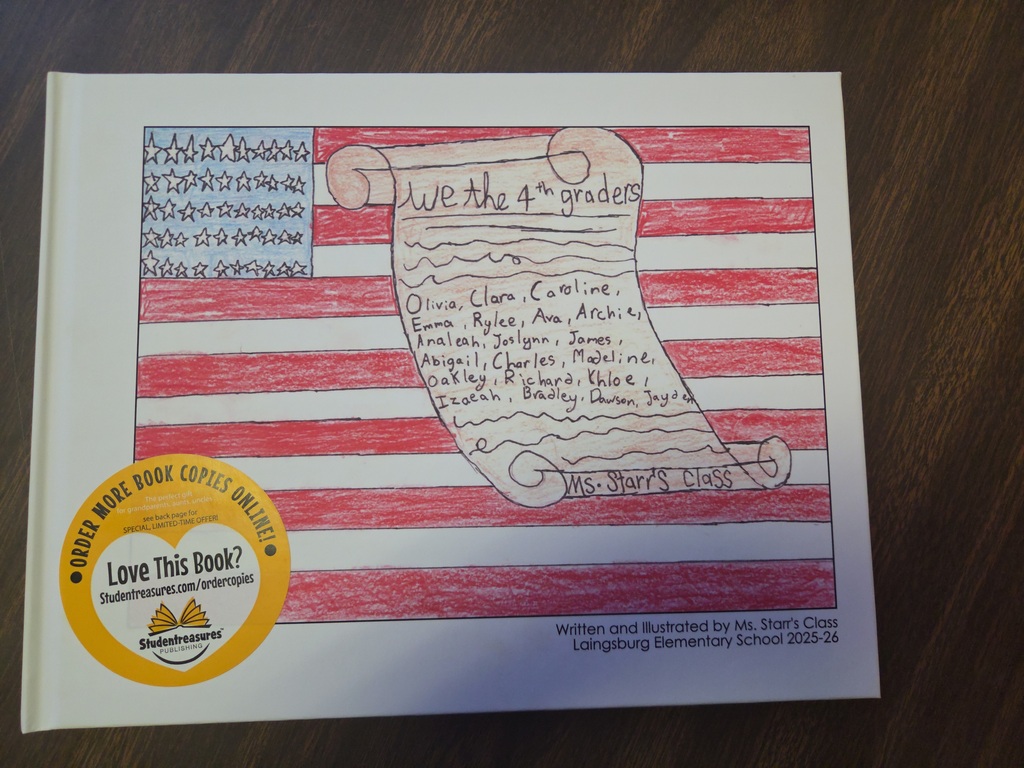 We the 4th graders
Olivia, Clara, Caroline,
Emma, Rylee, Ava, Archie,
Analeah, Joslynn, James,
Abigail, Charles, Madeline,
Oakley, Richard, Khloe,
Izaeah, Bradley, Dawson, Jayden
Ms. Starr's Class
ORDER MORE BOOK COPIES ONLINE!
The perfect gift
for grandparents, aunts, uncles
see back page for
SPECIAL, LIMITED-TIME OFFER!
Love This Book?
Studentreasures.com/ordercopies
Studentreasures™
PUBLISHING
Written and Illustrated by Ms. Starr's Class
Laingsburg Elementary School 2025-26